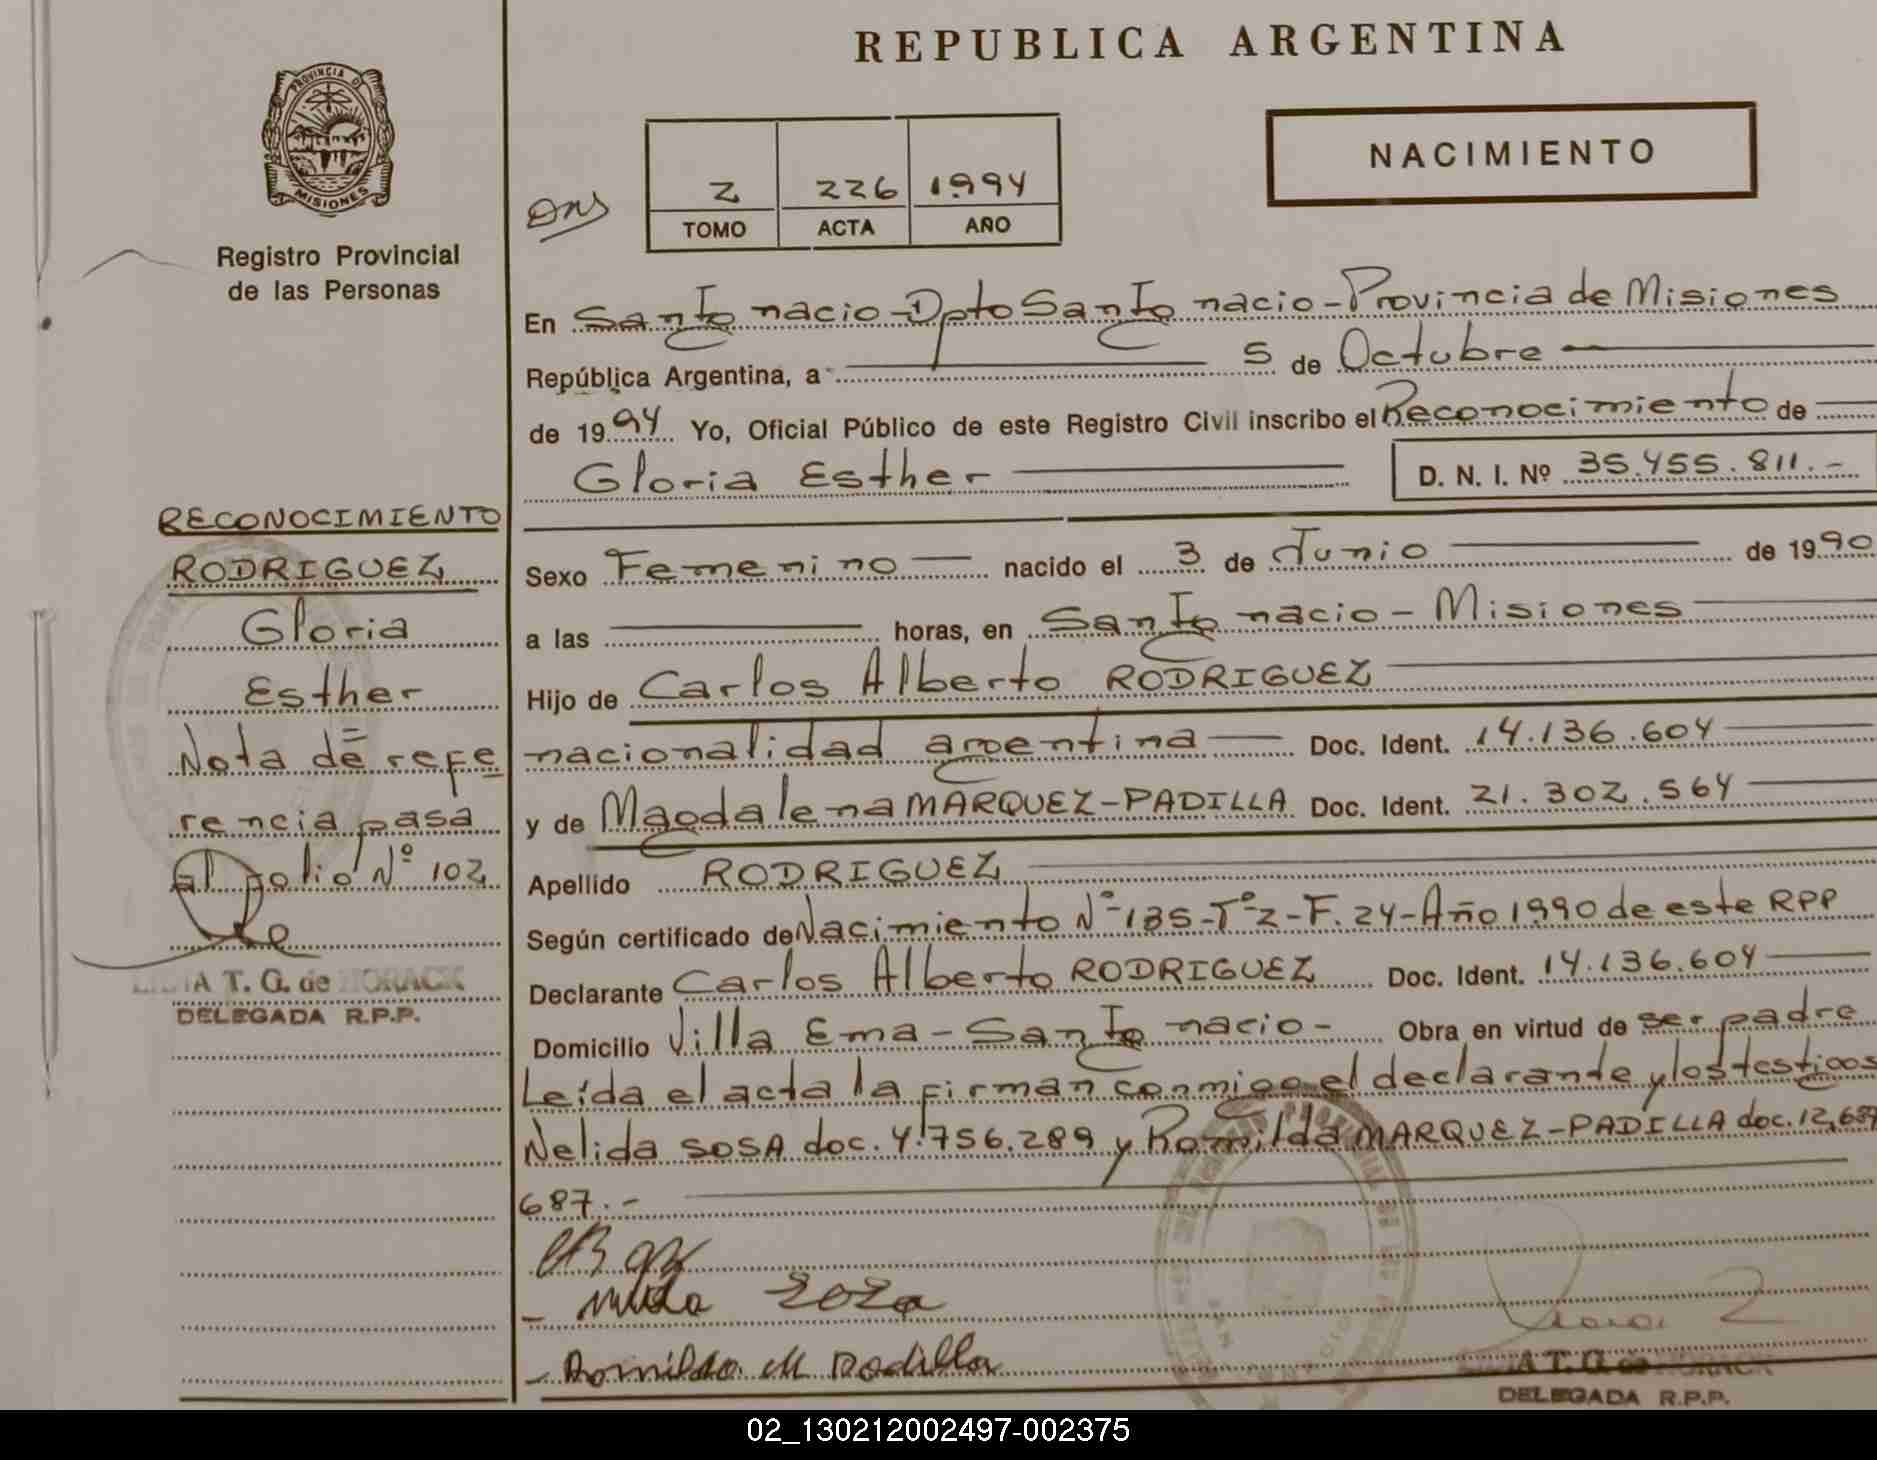 REPUBLICA ARGENTINA
PROVINCIA DE
MISIONES
Registro Provincial
de las Personas
NACIMIENTO
2 226 1.994
TOMO ACTA AÑO
En San Ignacio - Dpto San Ignacio - Provincia de Misiones
República Argentina, a 5 de Octubre
de 1994 Yo, Oficial Público de este Registro Civil inscribo el Reconocimiento de
Gloria Esther D. N. I. Nº 35.455.811.-
Sexo Femenino nacido el 3 de Junio de 1990
a las horas, en San Ignacio - Misiones
Hijo de Carlos Alberto RODRIGUEZ
nacionalidad argentina Doc. Ident. 14.136.604
y de Magdalena MARQUEZ-PADILLA Doc. Ident. 21.302.564
Apellido RODRIGUEZ
Según certificado de Nacimiento Nº 135-Tº2-F.24-Año 1990 de este RPP
Declarante Carlos Alberto RODRIGUEZ Doc. Ident. 14.136.604
Domicilio Villa Ema - San Ignacio - Obra en virtud de ser padre
Leída el acta la firman conmigo el declarante y los testigos
Nelida SOSA doc. 4.756.289 y Romilda MARQUEZ-PADILLA doc. 12,689
687.-
Romilda M Padilla
DELEGADA R.P.P.
RECONOCIMIENTO
RODRIGUEZ
Gloria
Esther
Nota de refe
rencia pasa
al folio Nº 102
A T. G. de HORACK
DELEGADA R.P.P.
02_130212002497-002375